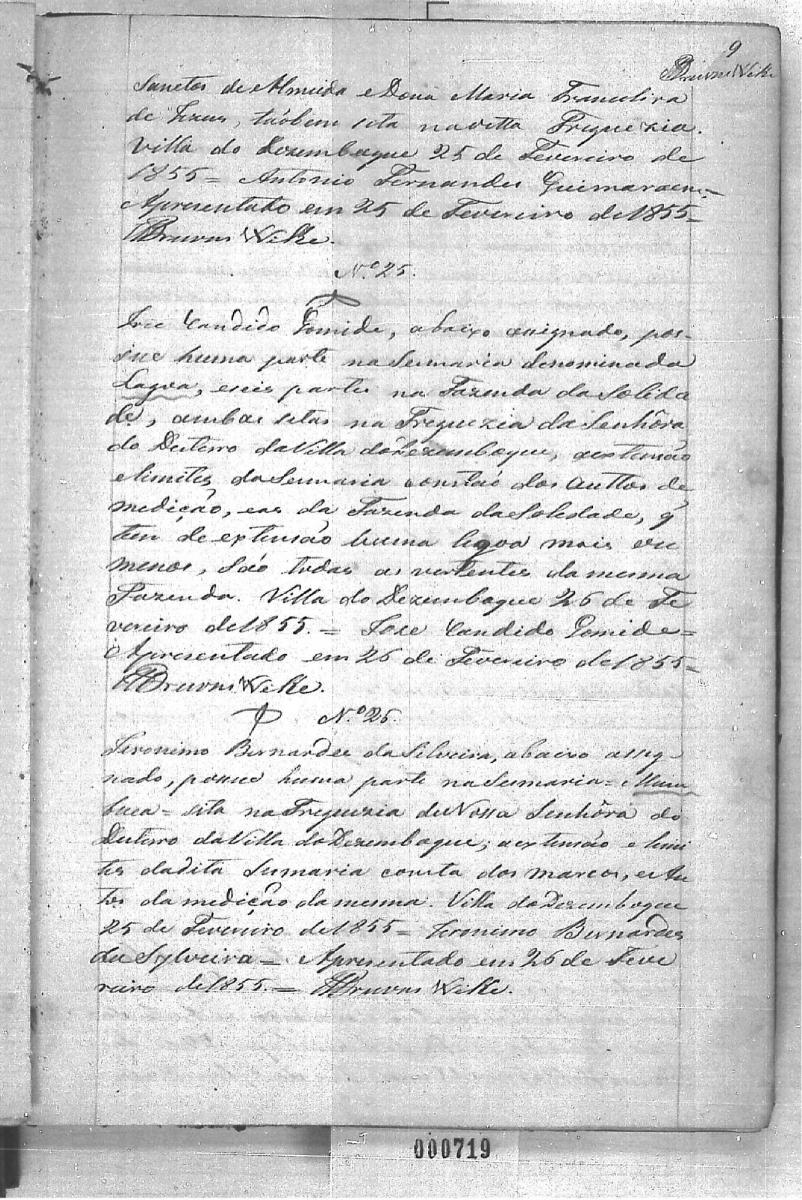 9
BrunsWike
Sanctos de Almeida e Dona Maria Francelina
de Jezus, taóbem sita na ditta Freguezia.
Villa do Dezemboque 25 de Fevereiro de
1855 = Antonio Fernandes Guimaraens =
Apresentado em 25 de Fevereiro de 1855 =
BrunsWike.
N.º 25.
Jose Candido Gomide, abaixo assignado, pos-
sue huma parte na Semaria denominada
Lagoa, e seis partes na Fazenda da Soleda
de, ambas sitas na Freguezia da Senhôra
do Dezterro da Villa do Dezemboque, a extensão
e limites da Semaria constaó dos Auttos de
medição, e as da Fazenda da Soledade, q
tem de extensão huma legoa mais ou
menos, saó todas as vertentes da mesma
Fazenda. Villa do Dezemboque 26 de Fe
vereiro de 1855. = Jose Candido Gomide =
Apresentado em 26 de Fevereiro de 1855 =
BrunsWike.
N.º 25.
Jeronimo Bernardes da Silveira, abaixo assig
nado, possue huma parte na Semaria =
baca = sita na Freguezia de Nossa Senhôra do
Dezterro da Villa do Dezemboque; a extensão e limi
tes da dita Semaria consta dos marcos, e Au
tos da medição da mesma. Villa do Dezemboque
25 de Fevereiro de 1855 = Jeronimo Bernardes
da Sylveira = Apresentado em 26 de Feve
reiro de 1855. = BrunsWike.
000719